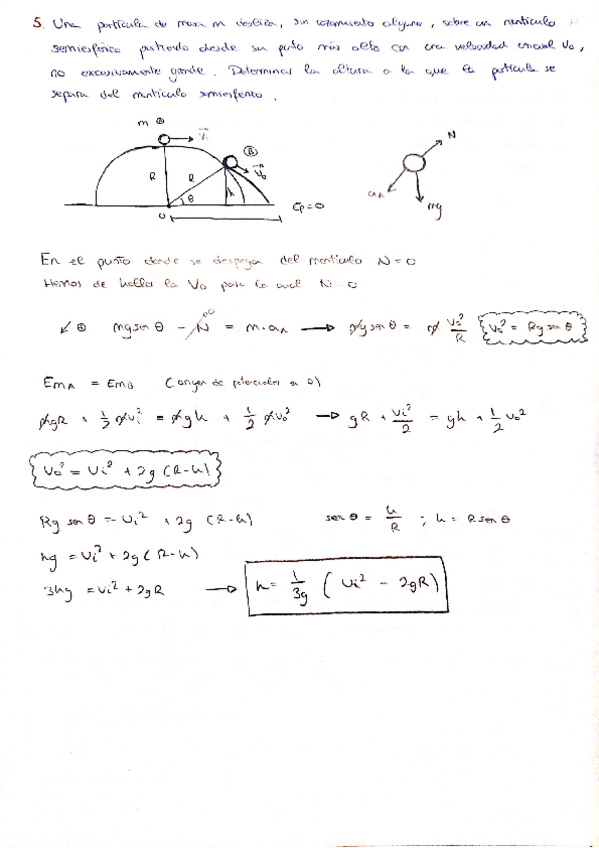 5. Una partícula de masa m desliza, sin rozamiento alguno, sobre un montículo
semiesférico partiendo desde su punto más alto con una velocidad inicial V₀,
no excesivamente grande. Determinar la altura a la que la partícula se
separa del montículo semiesférico.
m Ⓐ
V
Ⓑ
R R
V₀
h
θ
O
Ep=0
N
an
mg
En el punto donde se despega del montículo N=0
Hemos de hallar la V₀ para la cual N=0
↙⊕ mg sen θ - N = m·an → mg sen θ = m V₀²/R V₀² = Rg sen θ
0
EmA = EmB (origen de potenciales a 0)
mgR + 1/2 mvi² = mgh + 1/2 mv₀² → gR + Vi²/2 = gh + 1/2 V₀²
V₀² = Vi² + 2g (R-h)
Rg sen θ = Vi² + 2g (R-h) sen θ = h/R ; h = R sen θ
hg = Vi² + 2g (R-h)
3hg = Vi² + 2gR → h = 1/3g (Vi² - 2gR)